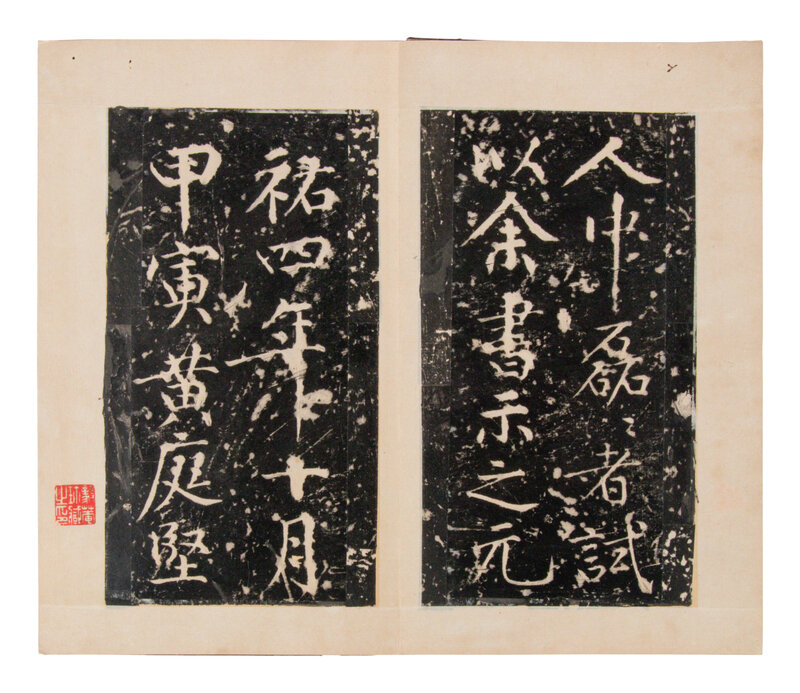 人中磊〻者試
以余書示之元
祐四年十月
甲寅黄庭堅